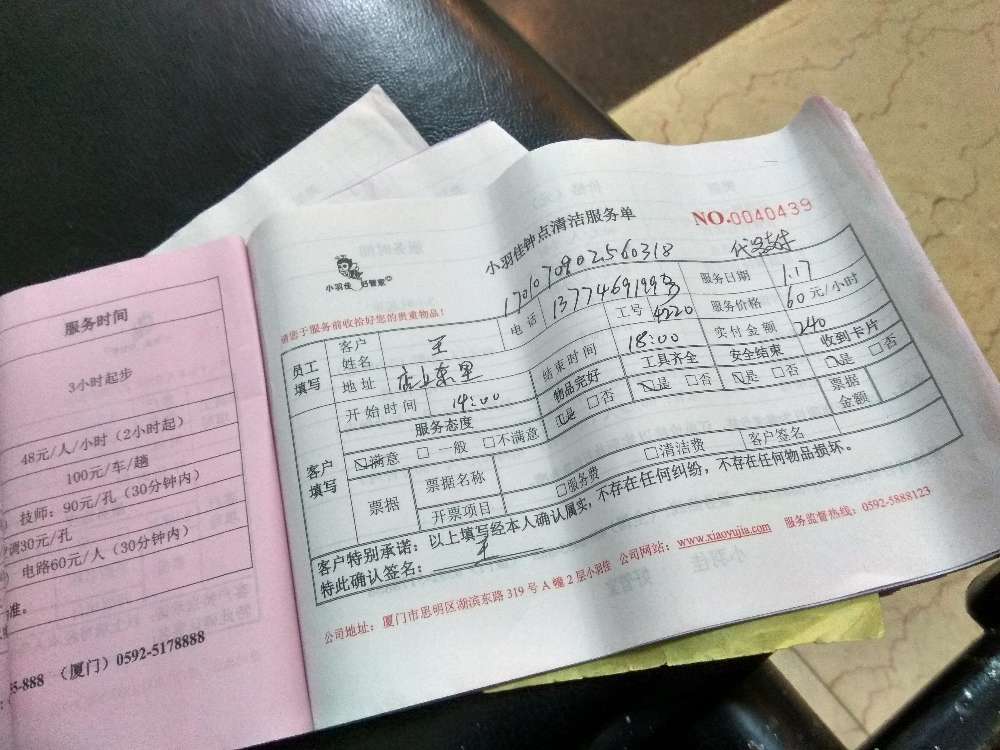 服务时间
3小时起步
48元/人/小时（2小时起）
100元/车/趟
技师：90元/孔（30分钟内）
调30元/孔
电路60元/人（30分钟内）
准。
5-888 （厦门）0592-5178888
小羽佳 好管家
小羽佳钟点清洁服务单
NO.0040439
请您于服务前收拾好您的贵重物品！
1701070902560318
员工填写
客户姓名 王 电话 工号 4220 服务日期 1.17
地址 结束时间 18:00 服务价格 60元/小时
开始时间 14:00 实付金额 240
客户填写
服务态度 物品完好 工具齐全 安全结束 收到卡片
☑满意 □一般 □不满意 ☑是 □否 ☑是 □否 ☑是 □否 ☑是 □否
票据 票据名称 票据金额
开票项目 □服务费 □清洁费 客户签名
客户特别承诺：以上填写经本人确认属实，不存在任何纠纷，不存在任何物品损坏。
特此确认签名： 王
公司地址：厦门市思明区湖滨东路 319 号 A 幢 2 层小羽佳 公司网站：www.xiaoyujia.com 服务监督热线：0592-5888123